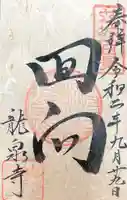 奉拝 令和二年九月廿五日
回向
龍泉寺